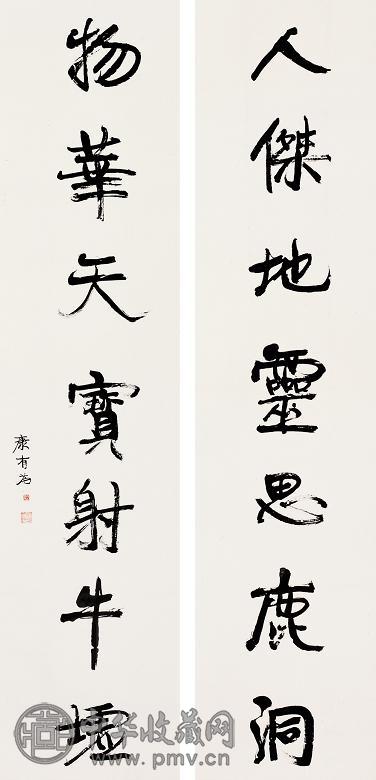 人傑地靈思鹿洞
物華天寶射牛墟
康有為
中华收藏网
www.pmv.cn